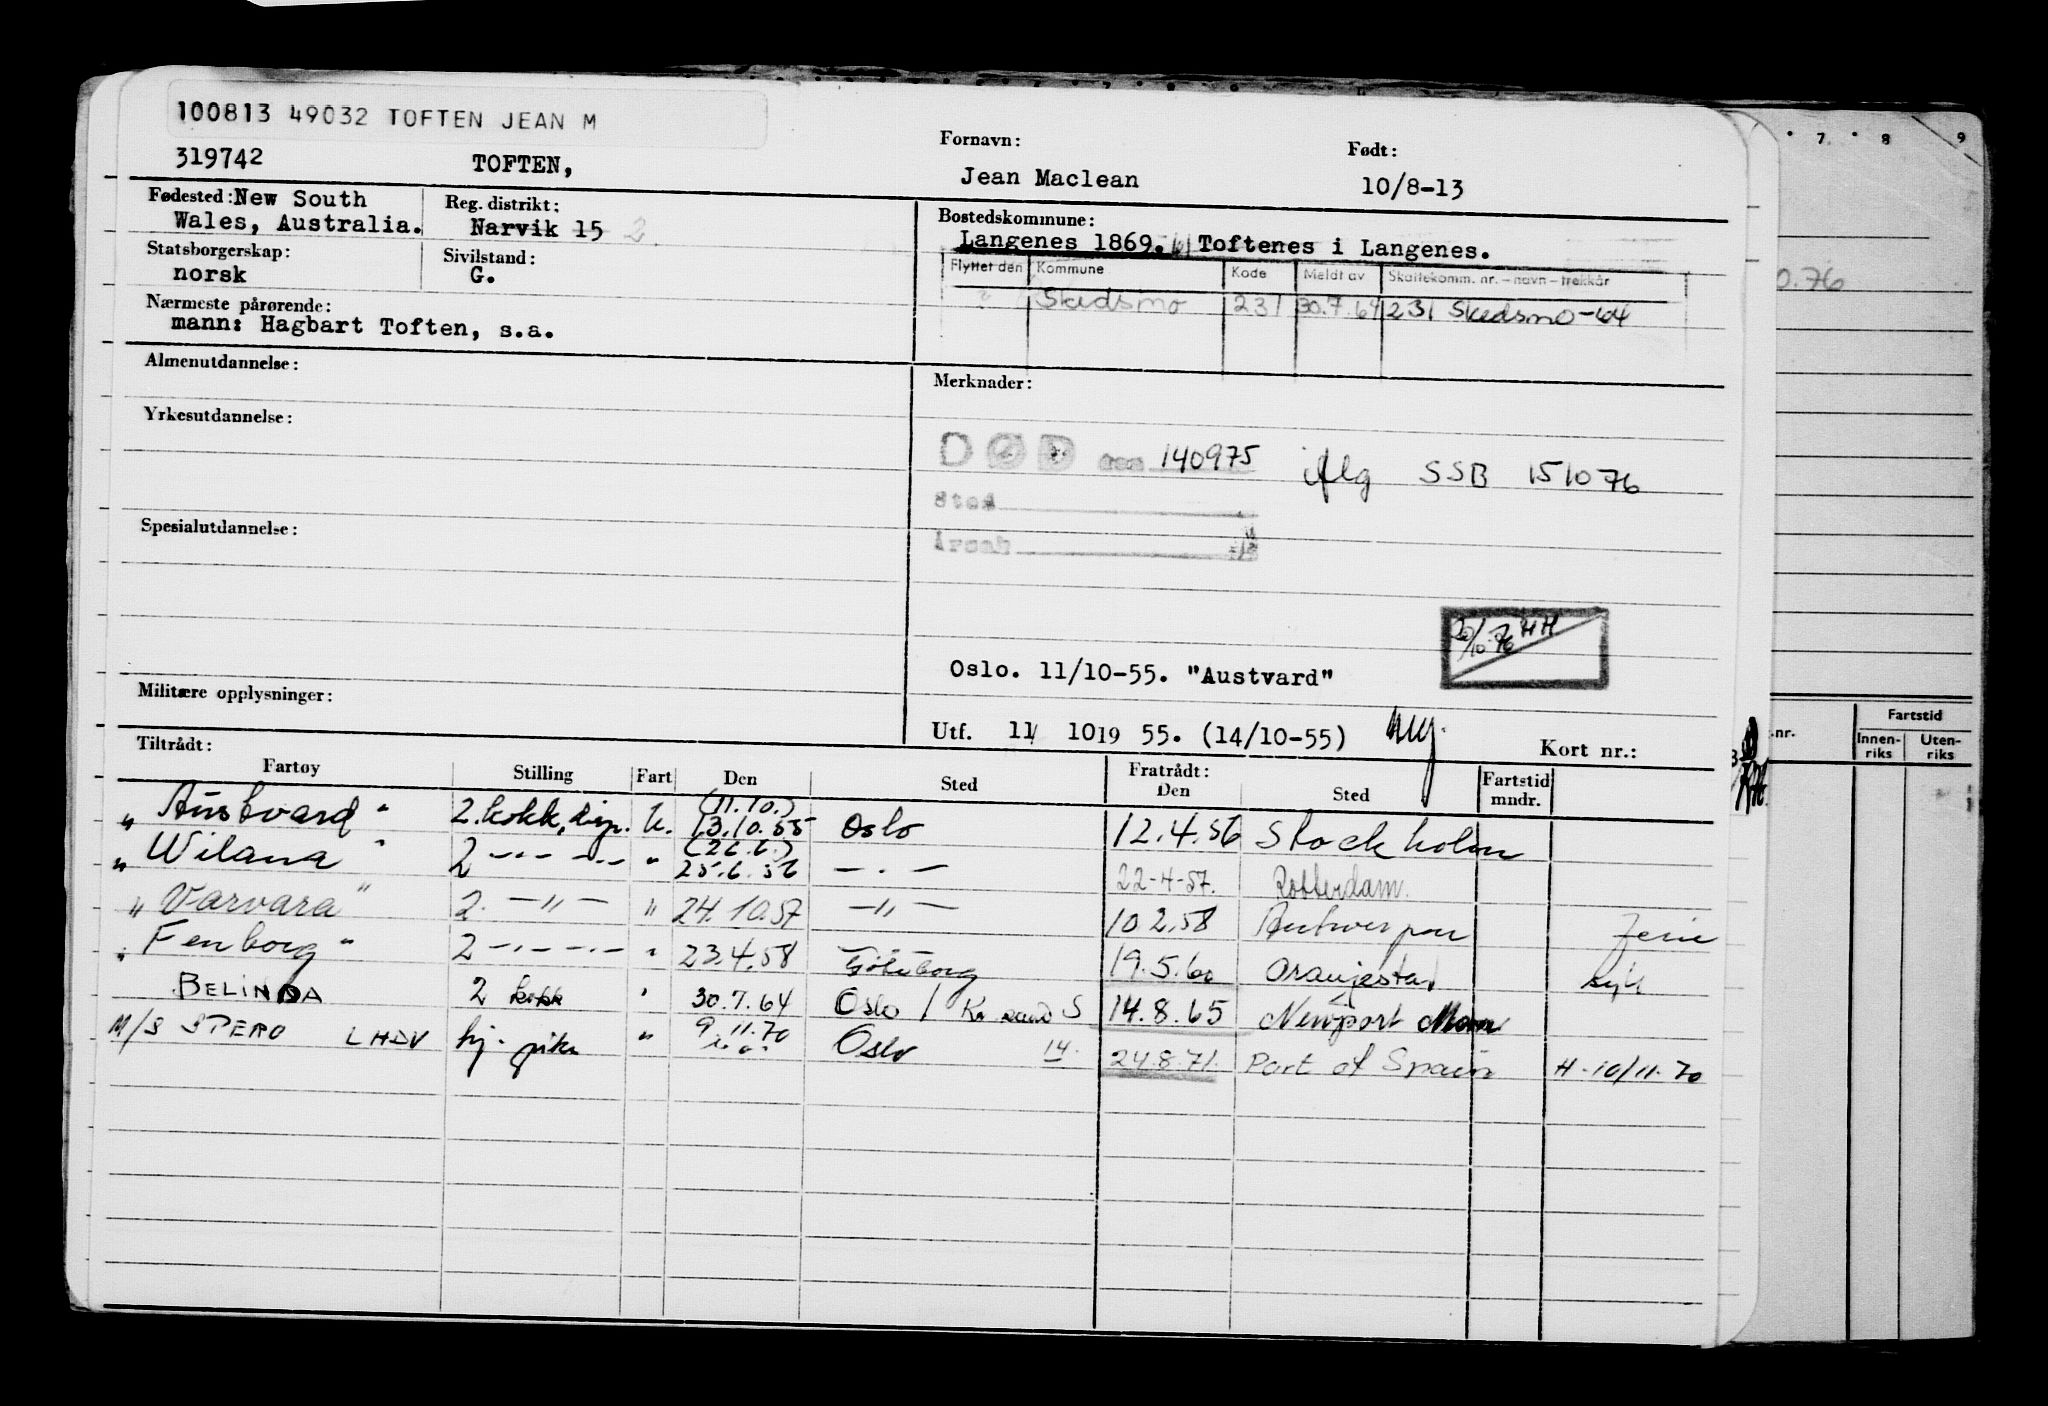 100813 49032 TOFTEN JEAN M
319742 TOFTEN,
Fornavn: Jean Maclean
Født: 10/8-13
Fødested: New South Wales, Australia.
Reg. distrikt: Narvik 15 2
Bostedskommune: Langenes 1869. Toftenes i Langenes.
Statsborgerskap: norsk
Sivilstand: G.
Flyttet den Kommune Kode Meldt av Skattekomm. nr. - navn - trekkår
Skedsmo 231 30.7.64 231 Skedsmo-64
Nærmeste pårørende: mann: Hagbart Toften, s.a.
Almenutdannelse:
Yrkesutdannelse:
Spesialutdannelse:
Militære opplysninger:
Merknader:
DØD den 140975 iflg SSB 151076
Sted
Årsak
20/10-76 HH
Oslo. 11/10-55. "Austvard"
Utf. 11/ 1019 55. (14/10-55)
Kort nr.:
Tiltrådt: Fratrådt:
Fartøy Stilling Fart Den Sted Den Sted Fartstid mndr.
"Austvard" 2. kokk, disp. U. (11.10.) 13.10.55 Oslo 12.4.56 Stockholm
"Wilana" 2 -"- -"- " (26.6.) 25.6.56 -"- 22-4-57. Rotterdam.
"Varvara" 2. -"- " 24.10.57 -"- 10.2.58 Antwerpen Ferie
"Fenborg" 2 -"- -"- " 23.4.58 Göteborg 19.5.60 Oranjestad syk
BELINDA 2 kokk " 30.7.64 Oslo / Kr. sand S 14.8.65 Newport Mon
M/S SPERO LHDV " 9.11.70 Oslo 14. 24.8.71. Port of Spain H. 10/11.70
7 8 9
0.76
nr. Fartstid
Innen-riks Uten-riks